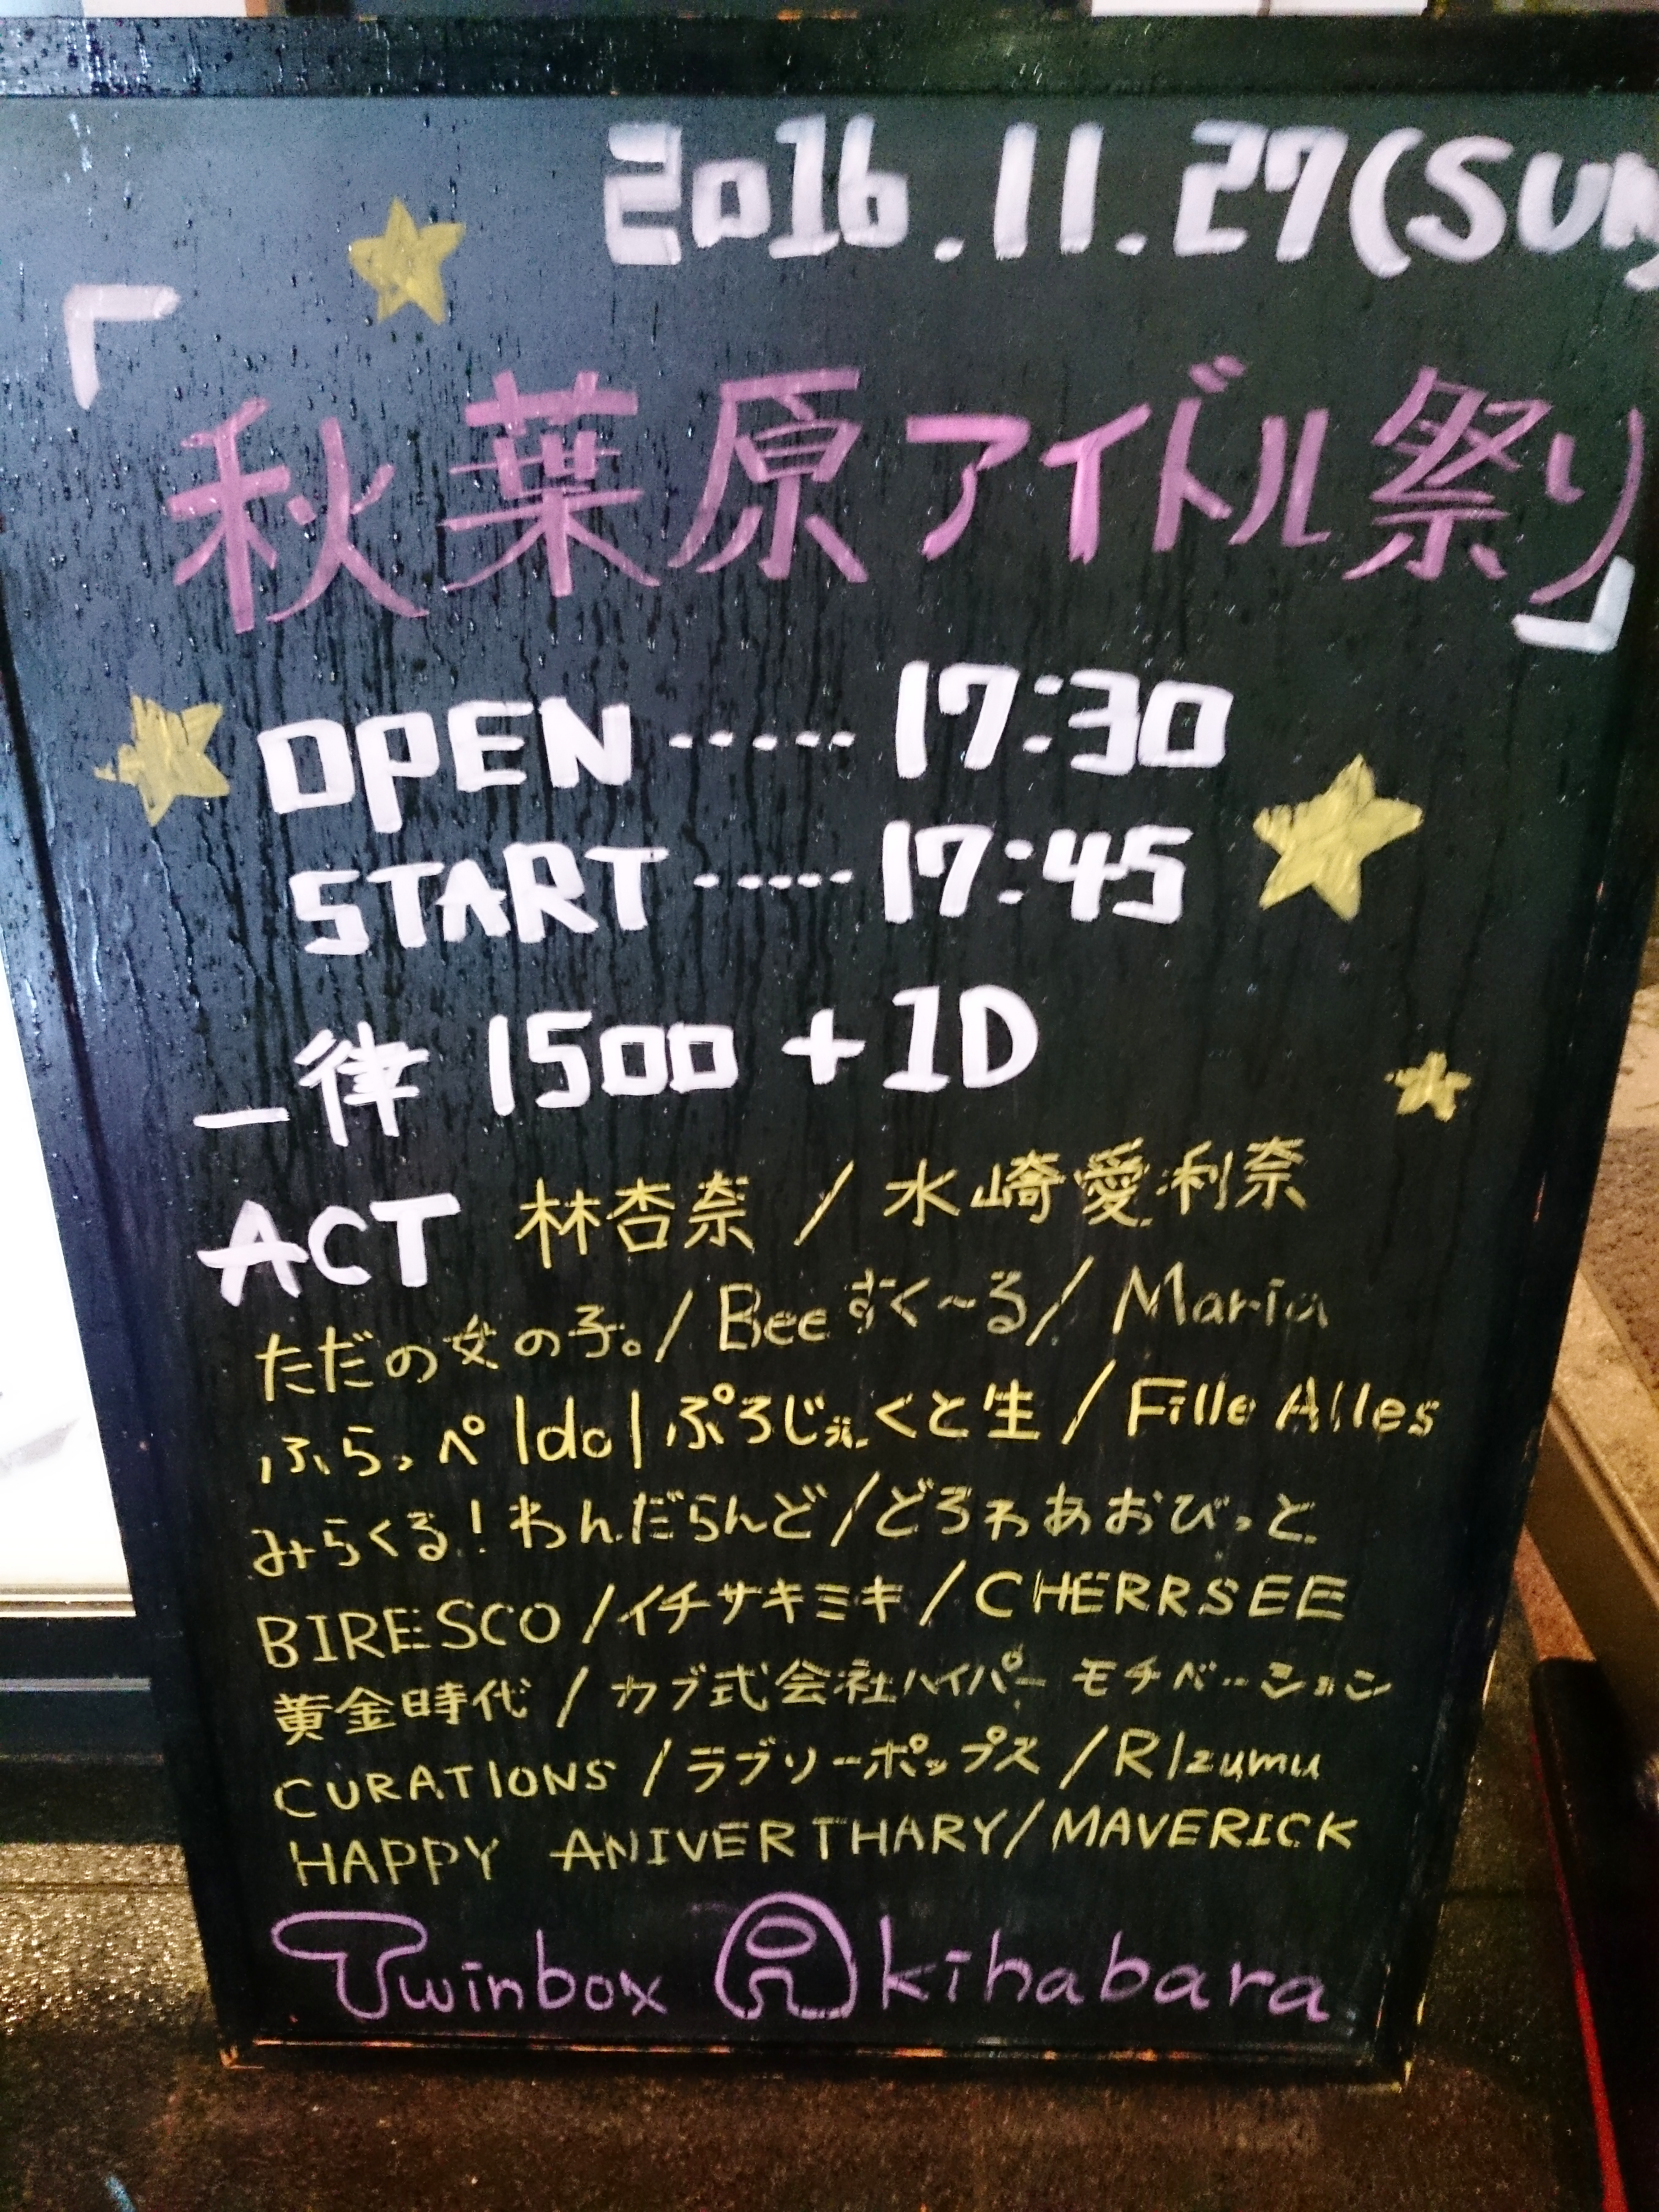 2016.11.27(SUN)
「秋葉原アイドル祭り」
OPEN ----- 17:30
START ----- 17:45
一律 1500 + 1D
ACT 林杏奈 / 水崎愛利奈
ただの女の子。/ Bee すく〜る / Maria
ふらっぺIdolぷろじぇくと生 / Fille Alles
みらくる!わんだらんど/どろわあおびっと
BIRESCO / イチサキミキ / CHERRSEE
黄金時代 / カブ式会社ハイパーモチベーション
CURATIONS / ラブリーポップス / RIzumu
HAPPY ANIVERTHARY / MAVERICK
Twinbox Akihabara